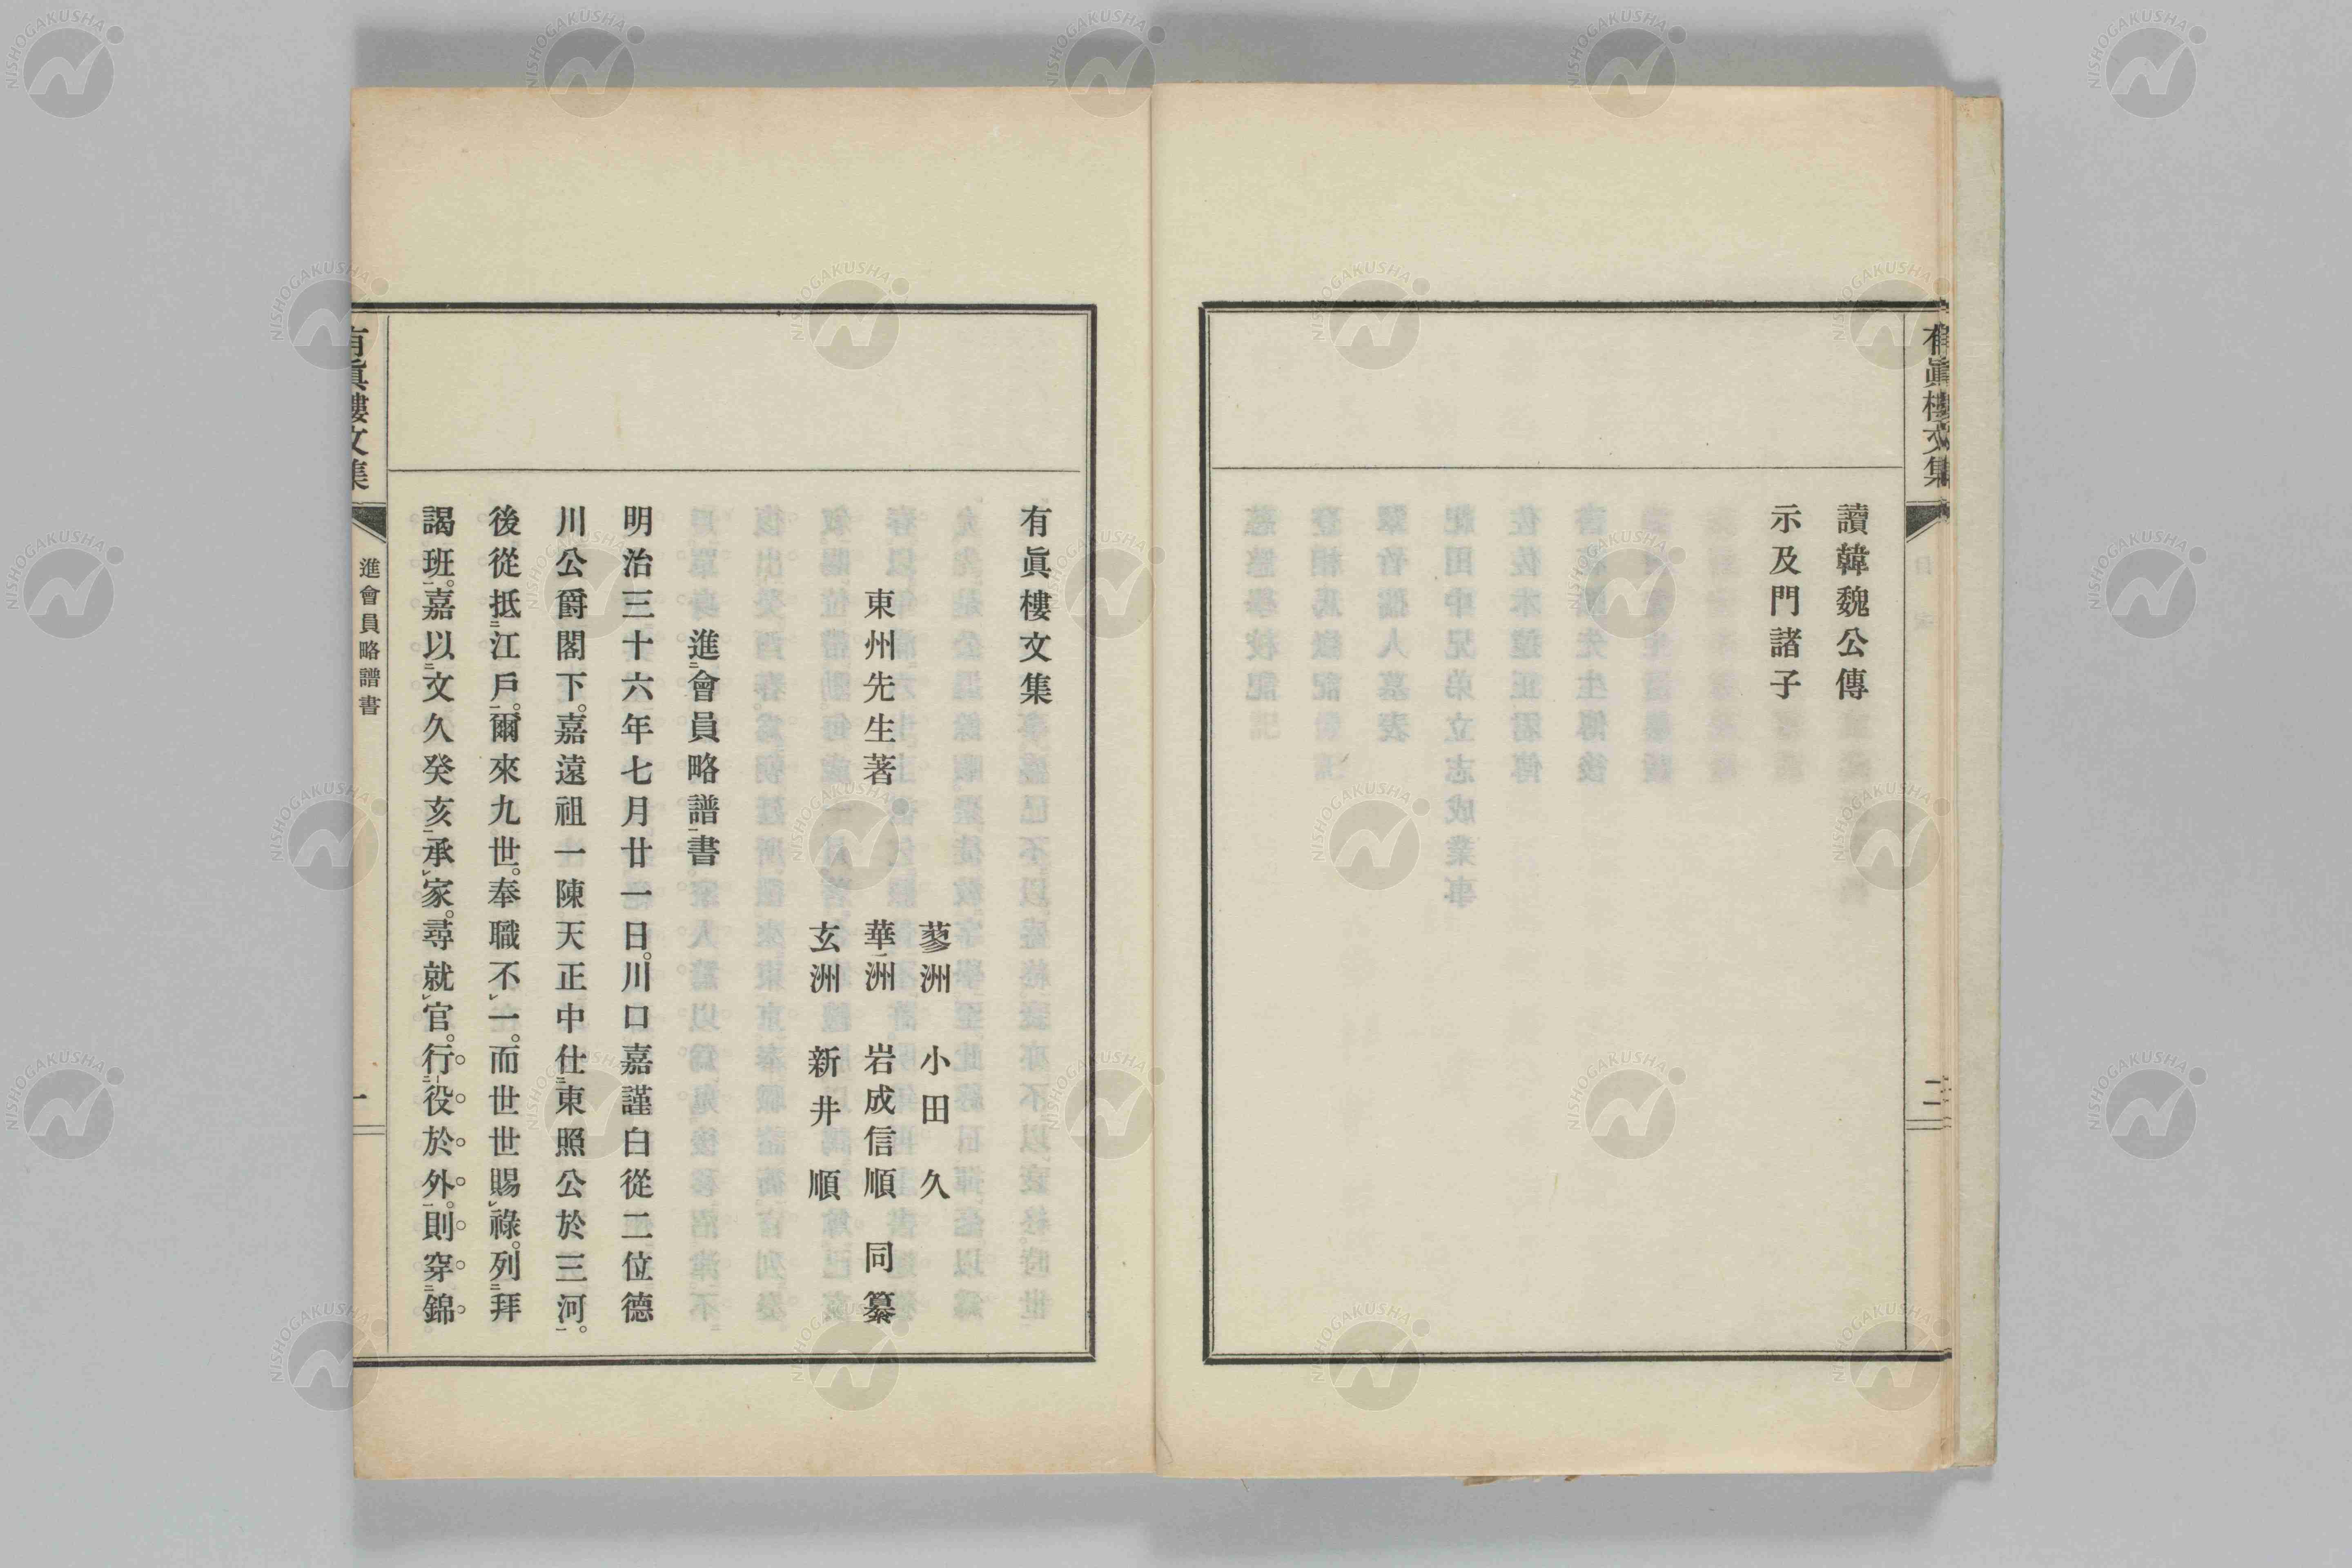 讀韓魏公傳
示及門諸子
有眞樓文集
二
有眞樓文集
東州先生著
蓼洲 小田 久
華洲 岩成信順 同纂
玄洲 新井 順
進會員略譜書
明治三十六年七月廿一日。川口嘉謹白從二位德
川公爵閣下。嘉遠祖一陳天正中仕東照公於三河。
後從抵江戶。爾來九世。奉職不一。而世世賜祿。列拜
謁班。嘉以文久癸亥承家。尋就官。行役於外。則穿錦
有眞樓文集
進會員略譜書
一
NISHOGAKUSHA